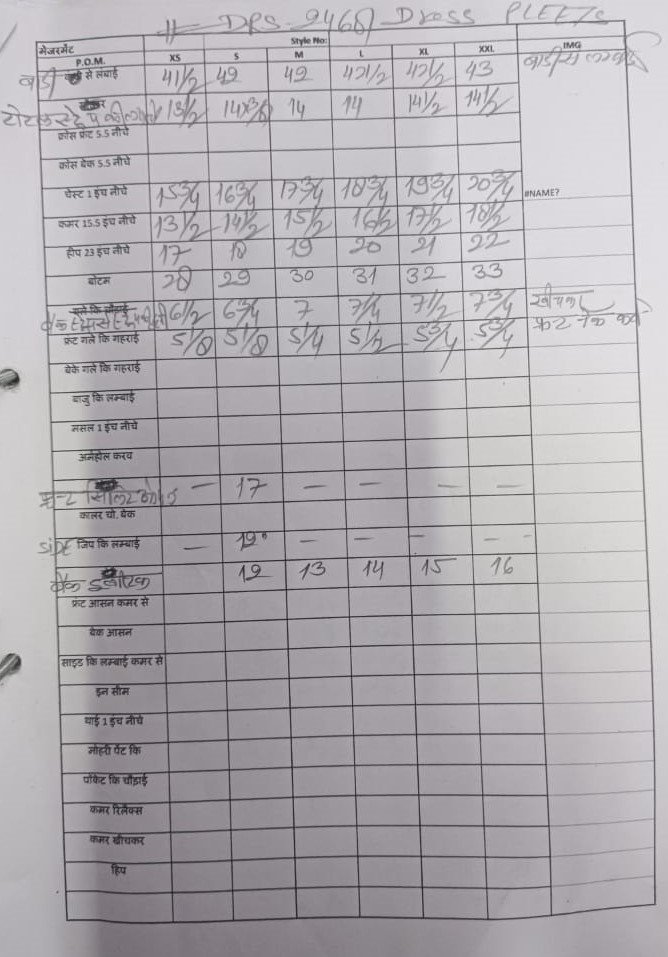 DRS-9468 Dress PLEETs
मेजरमेंट Style No: IMG
P.O.M. XS S M L XL XXL
बाडी से लंबाई 41 1/2 42 42 42 1/2 42 1/2 43
13 1/2 14 14 14 1/2 14 1/2
क्रोस फ्रंट 5.5 नीचे
क्रोस बेक 5.5 नीचे
चेस्ट 1 इंच नीचे 15 3/4 16 3/4 17 3/4 18 3/4 19 3/4 20 3/4 #NAME?
कमर 15.5 इंच नीचे 13 1/2 14 1/2 15 1/2 16 1/2 17 1/2 18 1/2
हीप 23 इंच नीचे 17 18 19 20 21 22
बोटम 28 29 30 31 32 33
गले कि चौड़ाई 6 1/2 6 3/4 7 7 1/4 7 1/2 7 3/4
फ्रंट गले कि गहराई 5 1/8 5 1/8 5 1/4 5 1/2 5 3/4 5 3/4
बेके गले कि गहराई
बाजु कि लम्बाई
मसल 1 इंच नीचे
अर्महोल करव
फ्रन्ट — 17 — — — —
कालर चो. बेक
SIDE जिप कि लम्बाई — 19" — — — —
बैक 12 13 14 15 16
फ्रंट आसन कमर से
बेक आसन
साइड कि लम्बाई कमर से
इन सीम
थाई 1 इंच नीचे
मोहरी पेंट कि
पॉकेट कि चौड़ाई
कमर रिलैक्स
कमर खीचकर
हिप